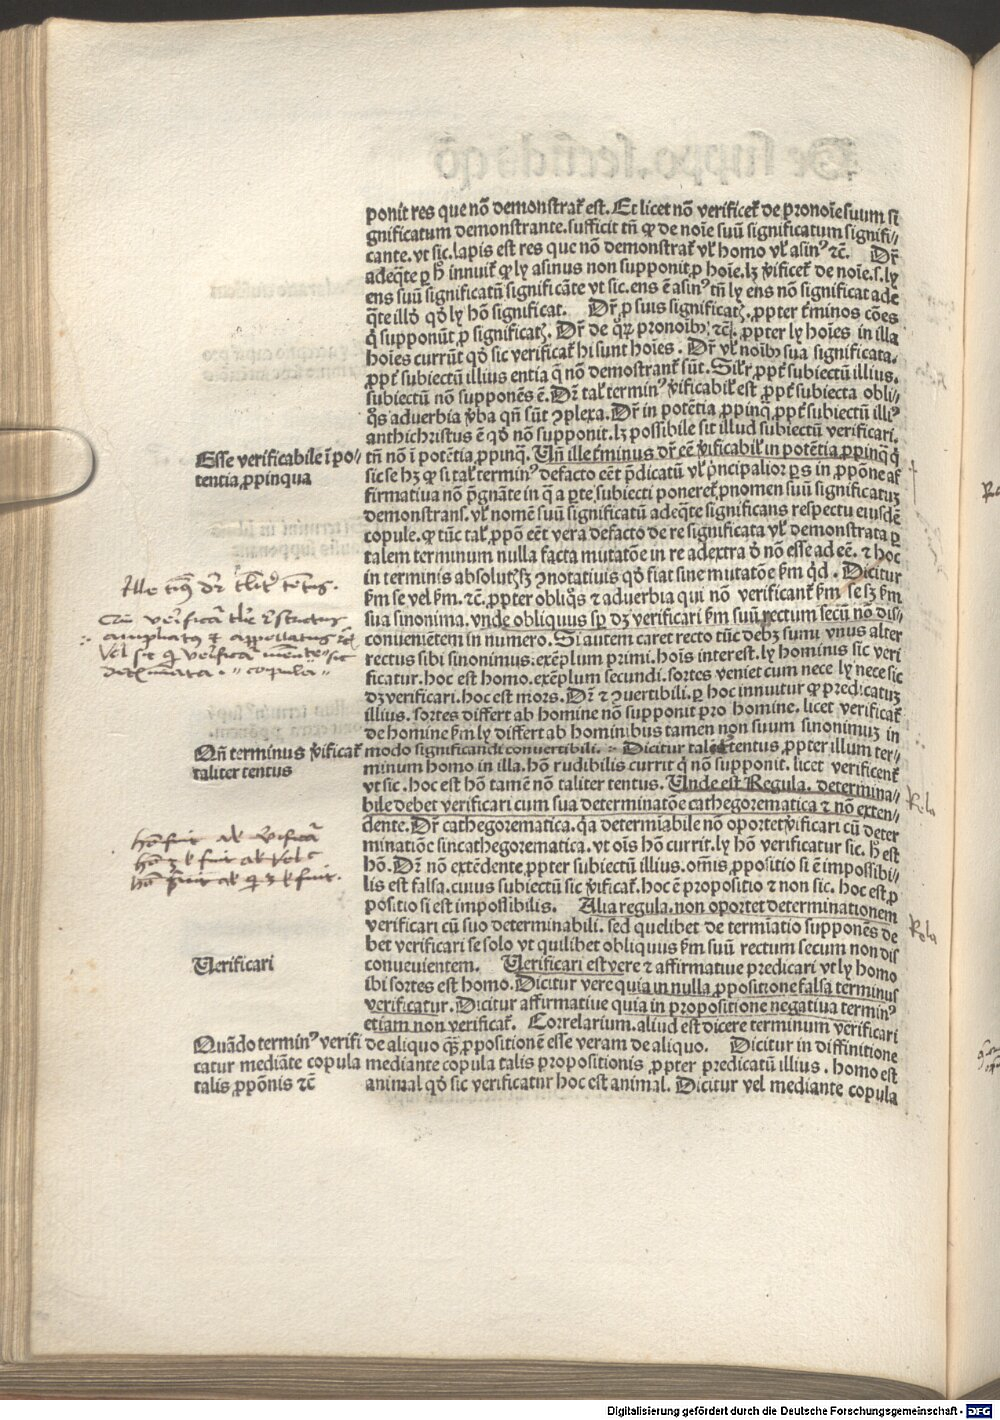 ponit res que nō demonstrat᷑ est. Et licet nō verificet᷑ de pronoīe suum si
gnificatum demonstrante. sufficit tñ ꝙ de noīe suū significatum signifi⸗
cante. vt sic. lapis est res que nō demonstrat᷑ vl̓ homo vl̓ asinꝰ ⁊c̄. Dr̄
adeq̄te ꝑ h̓ innuit᷑ ꝙ ly asinus non supponit ꝓ hoīe. lꝫ v̓ificet᷑ de noīe. s. ly
ens suū significatū significāte vt sic. ens ē asinꝰ tñ ly ens nō significat ade
q̄te illḋ qḋ ly hō significat. Dr̄ ꝓ suis significatꝭ. ꝓpter t̓minos cōes
q̓ supponūt ꝓ significatꝭ. Dr̄ de pronoībꝰ ⁊c̄. ꝓpter ly hoīes in illa
hoīes currūt qḋ sic verificat᷑ hi sunt hoīes. Dr̄ vl̓ noībꝰ sua significata.
ꝓpt̓ subiectū illius entia q̄ nō demostrant᷑ sūt. Sil̓r ꝓpt̓ subiectū illius.
subiectū nō supponēs ē. Dr̄ tal̓ terminꝰ v̓ificabil̓ est ꝓpt̓ subiecta obli⸗
q̓s aduerbia v̓ba qñ sūt ꝯplexa. Dr̄ in potētia ꝓpinq̄ ꝓpt̓ subiectū illiꝰ
anthichristus ē qḋ nō supponit. lꝫ possibile sit illud subiectū verificari.
tñ nō ī potētia ꝓpinq̄. Uñ ille t̓minus dr̄ eē v̓ificabil̓ in potētia ꝓpinq̄ q̓
sic se hꝫ ꝙ si tal̓ terminꝰ defacto eēt p̄dicatū vl̓ p̓ncipalior ꝑs in ꝓpōne af
firmatiua nō p̄gnāte in q̄ a ꝑte subiecti poneret᷑ ꝓnomen suū significatuꝫ
demonstrans. vl̓ nomē suū significatū adeq̄te significans respectu eiusdē
copule. ꝙ tūc tal̓ ꝓpō eēt vera defacto de re significata vl̓ demonstrata ꝑ
talem terminum nulla facta mutatōe in re ad extra ḋ nō esse ad eē. ⁊ hoc
in terminis absolutꝭ sꝫ ꝯnotatiuis qḋ fiat sine mutatōe ẜm q̓d. Dicitur
ẜm se vel ẜm. ⁊c̄. ꝓpter obliq̓s ⁊ aduerbia qui nō verificant᷑ ẜm se sꝫ ẜm
sua sinonima. vnde obliquus sp̱ dꝫ verificari ẜm suū rectum secū nō dis⸗
conuenientem in numero. Si autem caret recto tūc debꝫ sumi vnus alter
rectus sibi sinonimus. exēplum primi. hoīs interest. ly hominus sic veri
ficatur. hoc est homo. exēplum secundi. sortes veniet cum nece ly nece sic
dꝫ verificari. hoc est mors. Dr̄ ⁊ ꝯuertibili. ꝑ hoc innuitur ꝙ predicatuꝫ
illius. sortes differt ab homine nō supponit pro homine. licet verificat᷑
de homine ẜm ly differt ab hominibus tamen non suum sinonimuꝫ in
modo significandi conuertibili. Dicitur talit̓ tentus ꝓpter illum ter⸗
minum homo in illa. hō rudibilis currit q̓ nō supponit. licet verificent᷑
vt sic. hoc est hō tamē nō taliter tentus. Unde est Regula. determina⸗
bile debet verificari cum sua determinatōe cathegorematica ⁊ nō exten⸗
dente. Dr̄ cathegorematica. q̓a determīabile nō oportet v̓ificari cū deter
minatiōe sincathegorematica. vt oīs hō currit. ly hō verificatur sic. h̓ est
hō. Dr̄ nō extēdente ꝓpter subiectū illius. om̄is ꝓpositio si ē impossibi⸗
lis est falsa. cuius subiectū sic v̓ificat᷑. hoc ē propositio ⁊ non sic. hoc est ꝓ
positio si est impossibilis. Alia regula. non oportet determinationem
verificari cū suo determinabili. sed quelibet de termīatio supponēs de
bet verificari se solo vt quilibet obliquus ẜm suū rectum secum non dis
conueuientem. Uerificari est vere ⁊ affirmatiue predicari vt ly homo
ibi sortes est homo. Dicitur vere quia in nulla ꝓpositione falsa terminus
verificatur. Dicitur affirmatiue quia in propositione negatiua terminꝰ
etiam non verificat᷑. Correlarium. aliud est dicere terminum verificari
de aliquo ꝙ̄ꝫ ꝓpositionē esse veram de aliquo. Dicitur in diffinitione
mediante copula talis propositionis ꝓpter predicatū illius. homo est
animal qḋ sic verificatur hoc est animal. Dicitur vel mediante copula
Esse verificabile ī po⸗
tentia ꝓpinqua
Qñ terminus v̓ificat᷑
taliter tentus
Uerificari
Quādo terminꝰ verifi
catur mediāte copula
talis ꝓpōnis ⁊c̄
Digitalisierung gefördert durch die Deutsche Forschungsgemeinschaft - DFG